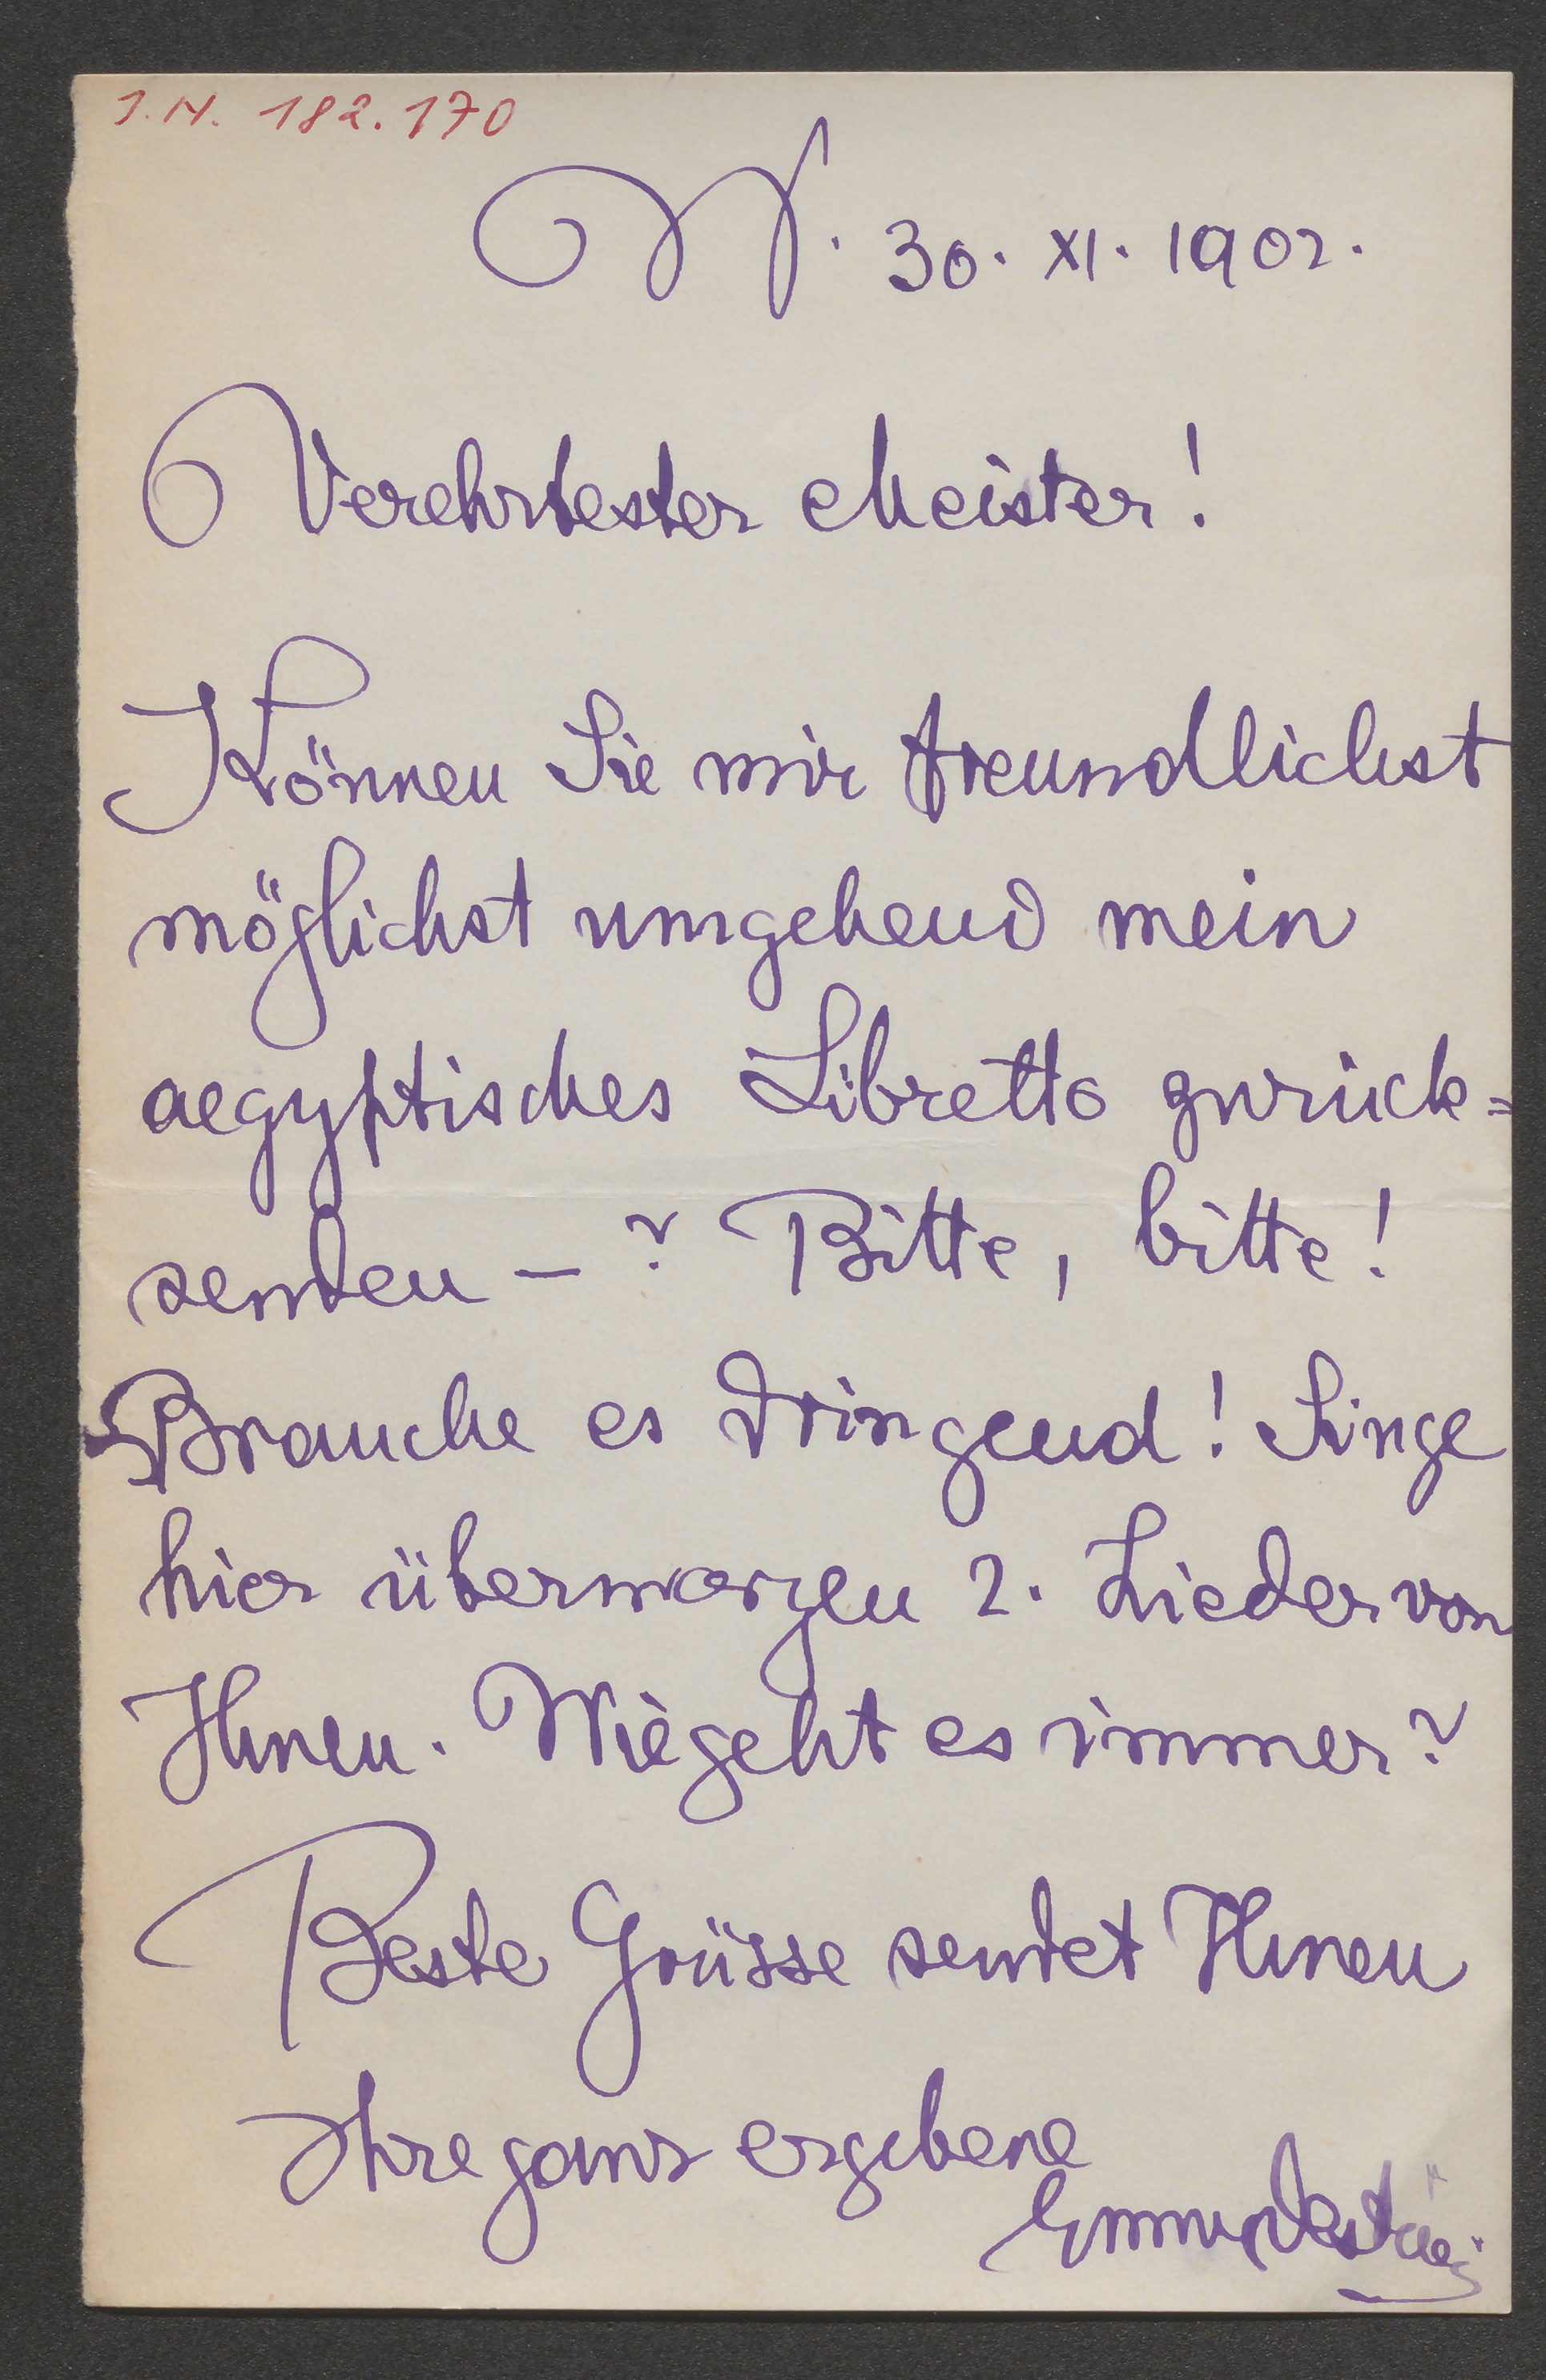 J.N. 182.170
W. 30. XI. 1902.
Verehrtester Meister!
Können Sie mir freundlichst
möglichst umgehend mein
aegyptisches Libretto zurück=
senden – ? Bitte, bitte!
Brauche es dringend! Singe
hier übermorgen 2. Lieder von
Ihnen. Wie geht es immer?
Beste Grüsse sendet Ihnen
Ihre ganz ergebene
Emmy Destinn